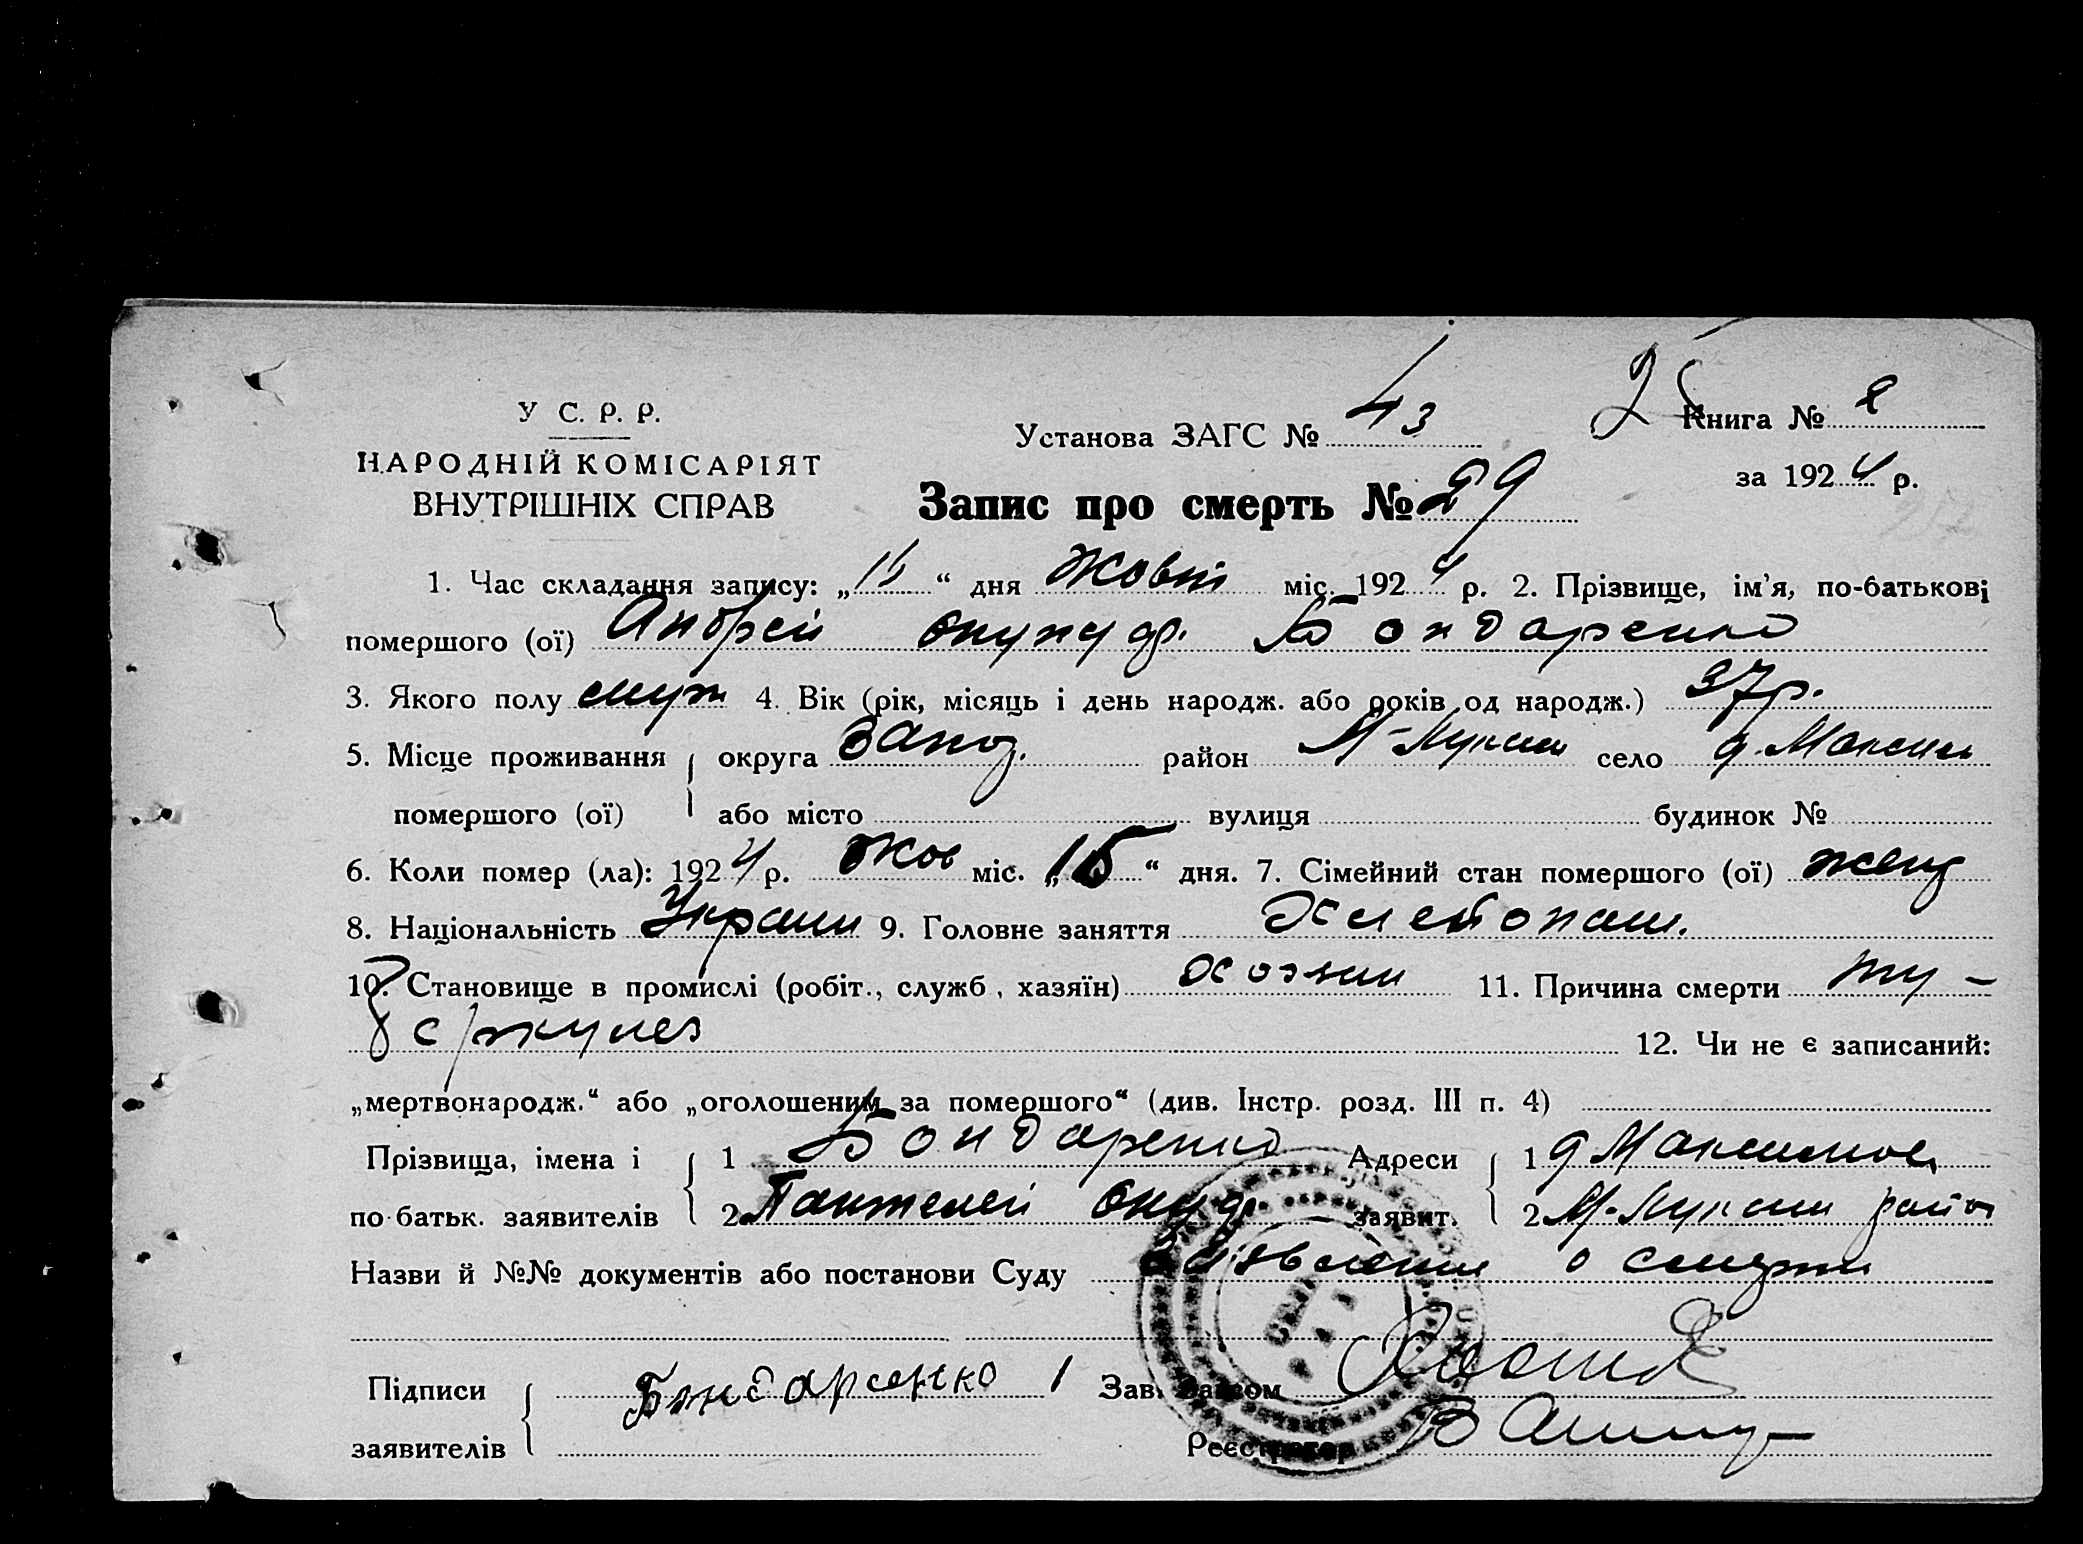 У С. Р. Р.
НАРОДНІЙ КОМІСАРІЯТ
ВНУТРІШНІХ СПРАВ
Установа ЗАГС № 43
25 Книга № 2
за 1924 р.
Запис про смерть № 29
1. Час складання запису: „15“ дня Жовт міс. 1924 р. 2. Прізвище, ім’я, по-батькові
помершого (ої) Андрей Бондаренко
3. Якого полу муж 4. Вік (рік, місяць і день народж. або років од народж.) 37 р.
5. Місце проживання округа Запоз. район М-Лукаш село д. Максим
помершого (ої) або місто вулиця будинок №
6. Коли помер (ла): 1924 р. Жов міс. „15“ дня. 7. Сімейний стан помершого (ої) женд
8. Національність Украин 9. Головне заняття Хлебопаш.
10. Становище в промислі (робіт., служб, хазяїн) хозяин 11. Причина смерти ту-
беркулез 12. Чи не є записаний:
„мертвонародж.“ або „оголошеним за помершого“ (див. Інстр. розд. III п. 4)
Прізвища, імена і 1 Бондаренко Адреси 1 д Максимов
по-батьк. заявителів 2 Пантелей заявит. 2 М-Лукаш район
Назви й №№ документів або постанови Суду Заявление о смерти
Підписи Бондаренко 1 Зав. Загсом
заявителів Реєстратор